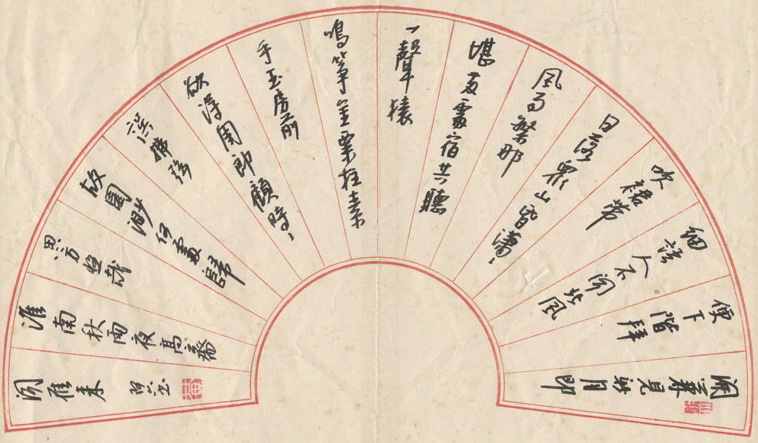 開簾見新月即
便下階拜
細語人不聞北風
吹裙帶
日落眾山昏瀟〻
風雨繁那
堪兩處宿共聽
一聲猿
鳴箏金粟柱素
手玉房前
欲得周郎顧時〻
誤拂弦
故園渺何處歸
思方悠哉
淮南秋雨夜高齋
聞雁來